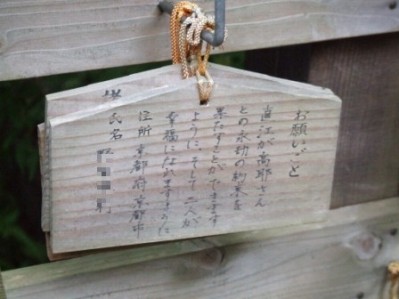 お願いごと
直江が高耶さん
との永劫の約束を
果たすことができます
ように、そして二人が
幸福になれますように
住所 京都府京都市
氏名